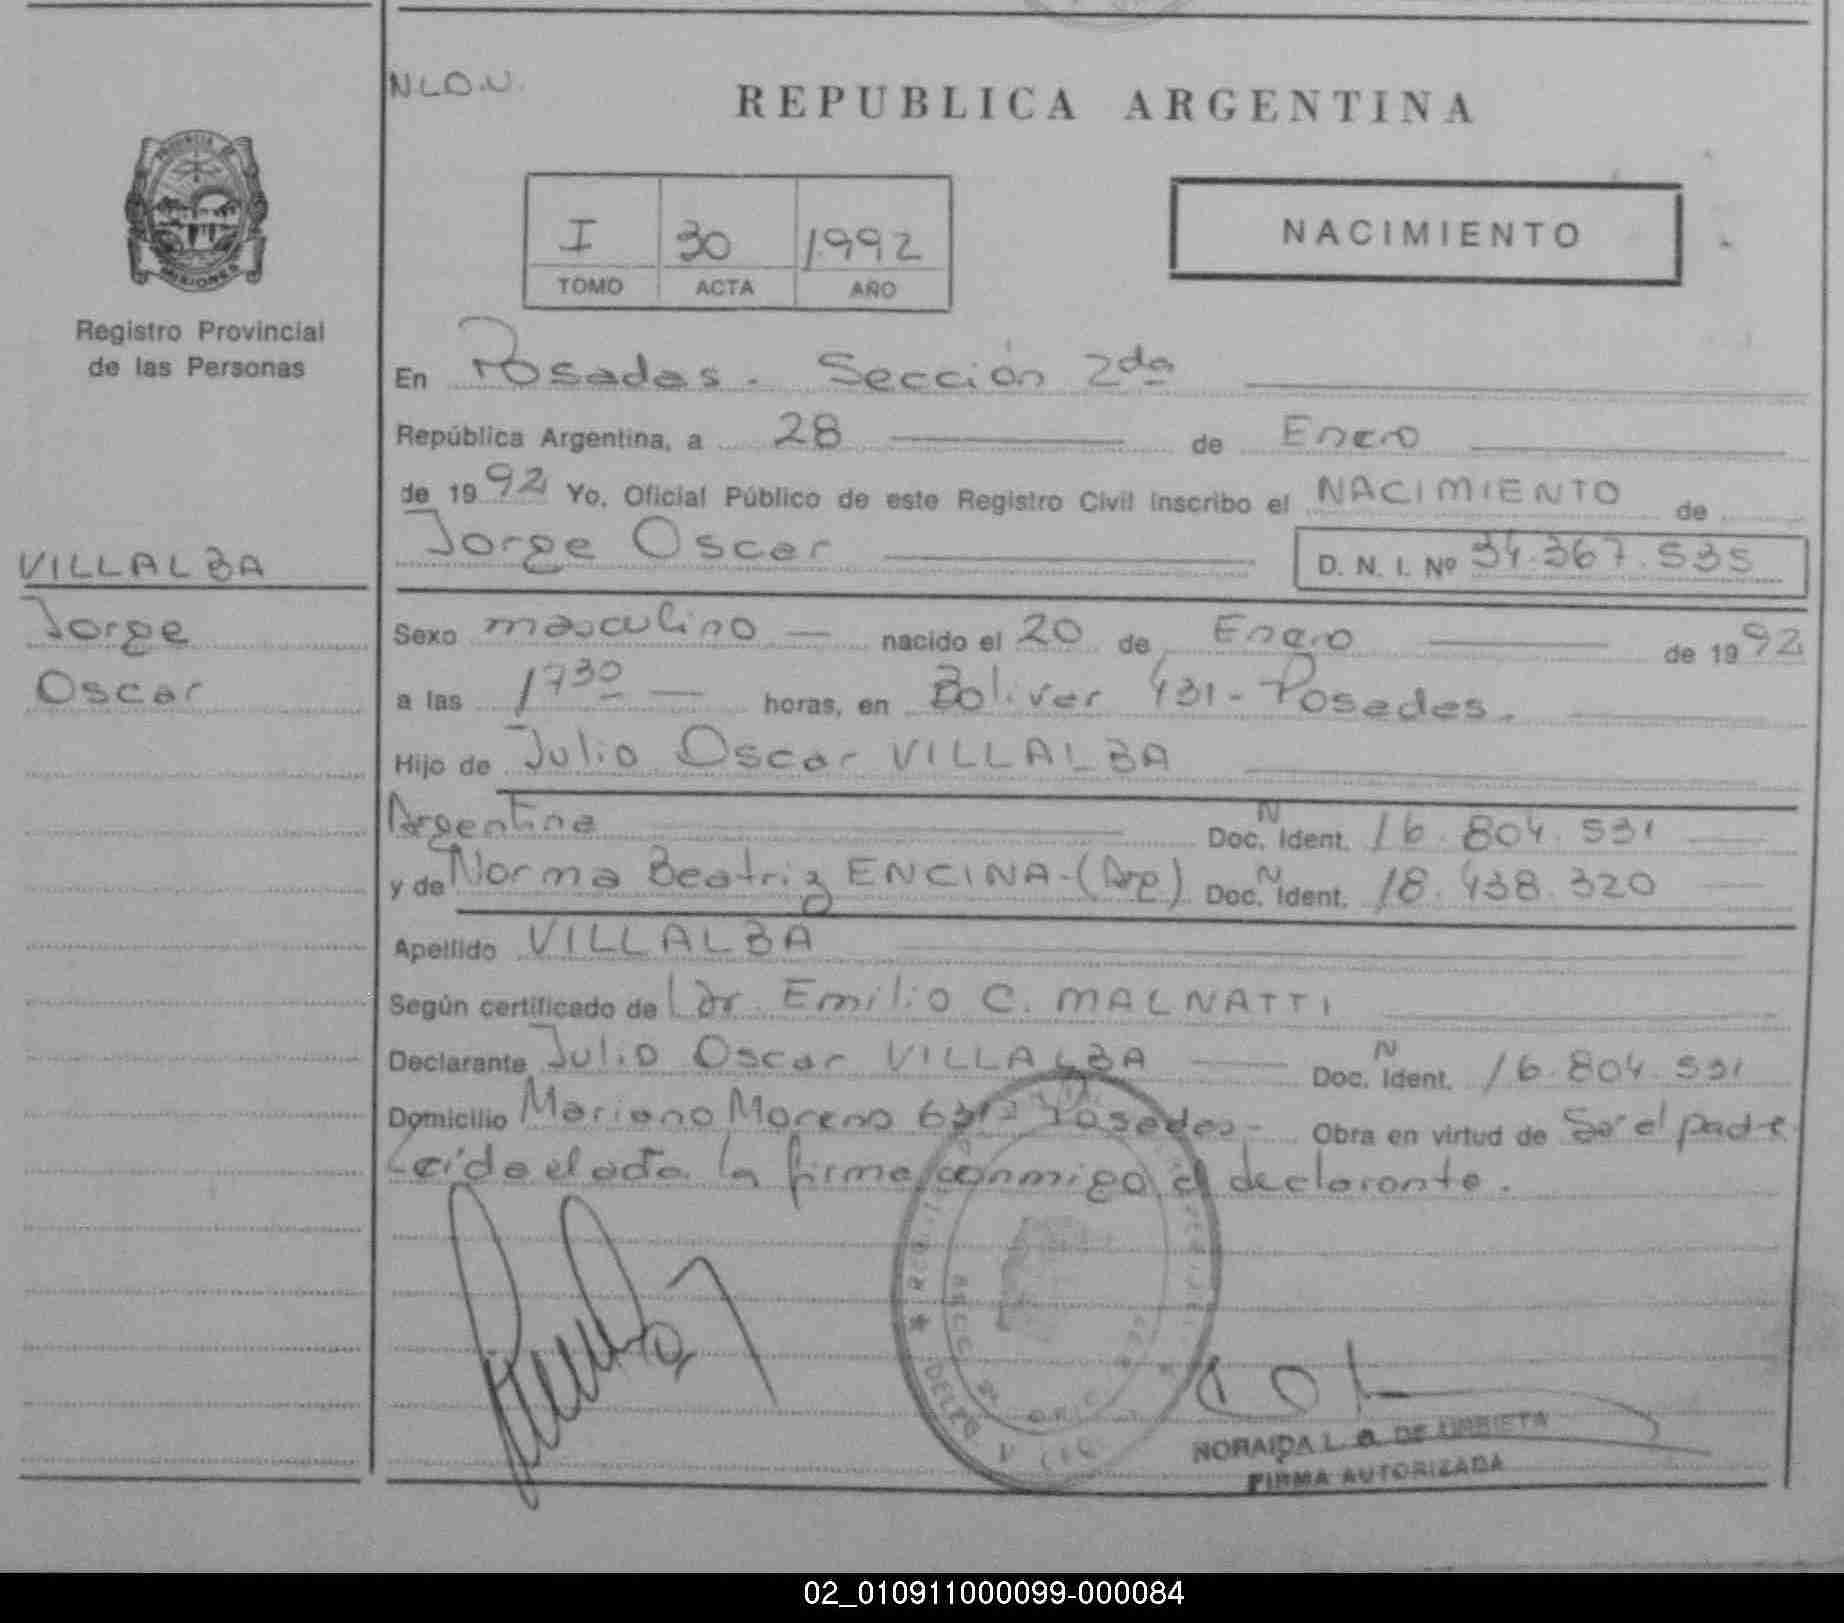 N.L.D.U.
REPUBLICA ARGENTINA
PROVINCIA DE
MISIONES
Registro Provincial
de las Personas
I 30 1992
TOMO ACTA AÑO
NACIMIENTO
En Posadas. Sección 2da
República Argentina, a 28 de Enero
de 1992 Yo, Oficial Público de este Registro Civil inscribo el NACIMIENTO de
Jorge Oscar D. N. I. Nº 34.367.535
VILLALBA
Jorge
Oscar
Sexo masculino nacido el 20 de Enero de 1992
a las 1730 horas, en Bolivar 431 - Posadas.
Hijo de Julio Oscar VILLALBA
Argentina Doc. N Ident. 16.804.531
y de Norma Beatriz ENCINA - (Arg) Doc. N Ident. 18.438.320
Apellido VILLALBA
Según certificado de Dr. Emilio C. MALNATTI
Declarante Julio Oscar VILLALBA Doc. N Ident. 16.804.531
Domicilio Mariano Moreno Posadas - Obra en virtud de Ser el padre
Leída el acta la firma conmigo el declarante.
NORAIDA L. DE URBIETA
FIRMA AUTORIZADA
02_010911000099-000084